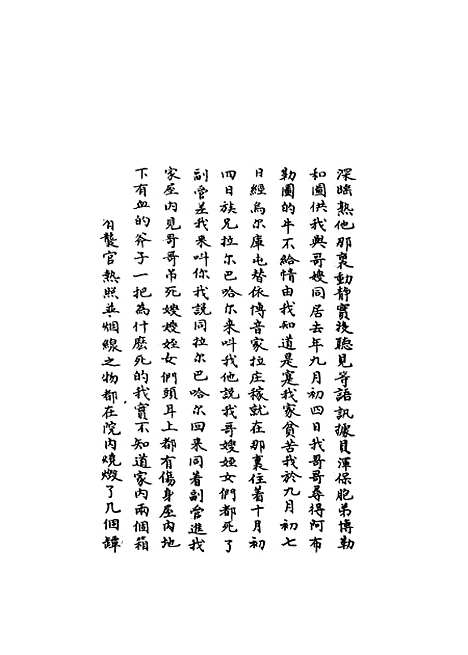 深睡熟他那裏動靜實沒聽見等語訊據貝渾保胞弟博勒
和圖供我與哥嫂同居去年九月初四日我哥哥尋得阿布
勒圖的牛不給情由我知道是寔我家貧苦我於九月初七
日經烏尔庫屯替依博音家拉庄稼就在那裏住着十月初
四日族兄拉尔巴哈尔来叫我他說我哥嫂姪女們都死了
副管差我来叫你我說同拉尔巴哈尔回来同着副管進我
家屋內見哥哥吊死嫂嫂姪女們頭耳上都有傷身屋內地
下有血的斧子一把為什麽死的我實不知道家內兩個箱
官熟照並烟線之物都在院內燒燬了几個